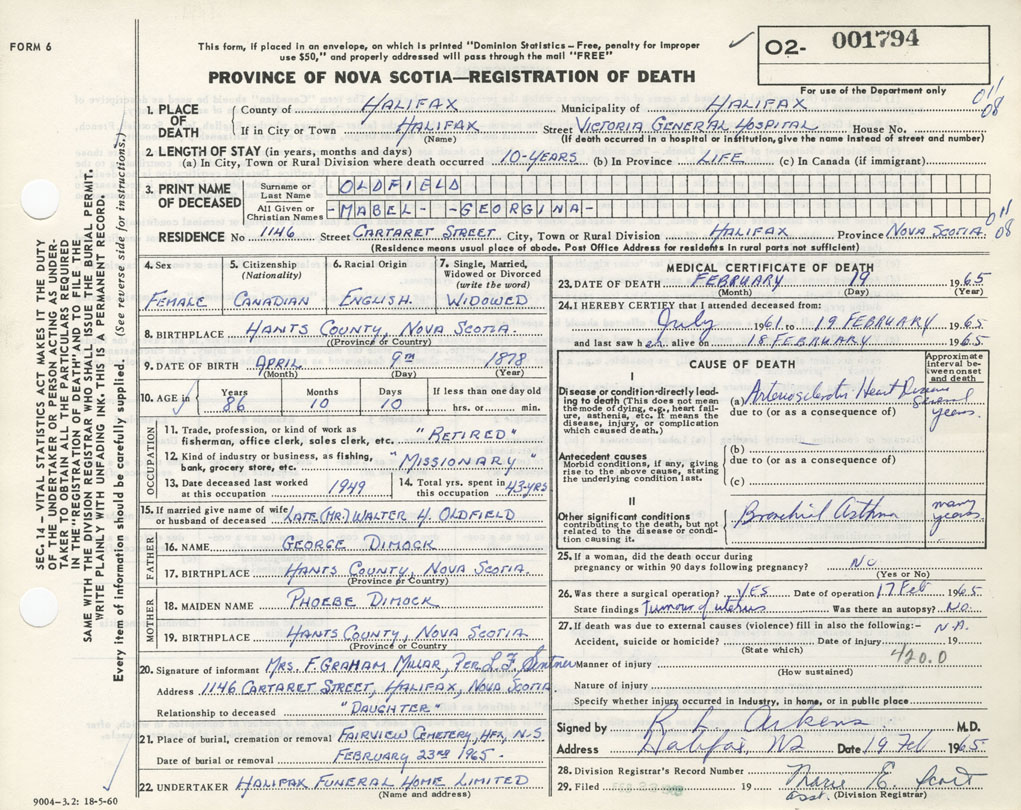 FORM 6
This form, if placed in an envelope, on which is printed "Dominion Statistics – Free, penalty for improper
use $50," and properly addressed will pass through the mail "FREE"
✓ O2- 001794
PROVINCE OF NOVA SCOTIA—REGISTRATION OF DEATH
For use of the Department only
011
08
1. PLACE OF DEATH
County of HALIFAX Municipality of HALIFAX
If in City or Town HALIFAX Street VICTORIA GENERAL HOSPITAL House No.
(Name) (If death occurred in a hospital or institution, give the name instead of street and number)
2. LENGTH OF STAY (in years, months and days)
(a) In City, Town or Rural Division where death occurred 10-YEARS (b) In Province LIFE (c) In Canada (if immigrant)
3. PRINT NAME OF DECEASED
Surname or Last Name OLDFIELD
All Given or Christian Names -MABEL- -GEORGINA-
RESIDENCE No 1146 Street CARTARET STREET City, Town or Rural Division HALIFAX Province NOVA SCOTIA
011
08
(Residence means usual place of abode. Post Office Address for residents in rural parts not sufficient)
4. Sex
FEMALE
5. Citizenship (Nationality)
CANADIAN
6. Racial Origin
ENGLISH.
7. Single, Married, Widowed or Divorced (write the word)
WIDOWED
8. BIRTHPLACE HANTS COUNTY, NOVA SCOTIA.
(Province or Country)
9. DATE OF BIRTH APRIL 9TH 1878
(Month) (Day) (Year)
10. AGE in Years 86 Months 10 Days 10 If less than one day old hrs. or min.
OCCUPATION
11. Trade, profession, or kind of work as fisherman, office clerk, sales clerk, etc. "RETIRED"
12. Kind of industry or business, as fishing, bank, grocery store, etc. "MISSIONARY"
13. Date deceased last worked at this occupation 1949
14. Total yrs. spent in this occupation 43-YRS
15. If married give name of wife or husband of deceased LATE (MR.) WALTER H. OLDFIELD
FATHER
16. NAME GEORGE DIMOCK
17. BIRTHPLACE HANTS COUNTY, NOVA SCOTIA.
(Province or Country)
MOTHER
18. MAIDEN NAME PHOEBE DIMOCK
19. BIRTHPLACE HANTS COUNTY, NOVA SCOTIA
(Province or Country)
20. Signature of informant MRS. F. GRAHAM MILLAR, PER L F
Address 1146 CARTARET STREET, HALIFAX, NOVA SCOTIA.
Relationship to deceased "DAUGHTER"
21. Place of burial, cremation or removal FAIRVIEW CEMETERY, HFX, N-S
Date of burial or removal FEBRUARY 23RD 1965.
22. UNDERTAKER HALIFAX FUNERAL HOME LIMITED
(Name and address)
MEDICAL CERTIFICATE OF DEATH
23. DATE OF DEATH FEBRUARY 19 1965
(Month) (Day) (Year)
24. I HEREBY CERTIFY that I attended deceased from:
July 1961 to 19 FEBRUARY 1965
and last saw her alive on 18 FEBRUARY 1965
CAUSE OF DEATH
Approximate interval between onset and death
I
Disease or condition directly leading to death (This does not mean the mode of dying, e.g., heart failure, asthenia, etc. It means the disease, injury, or complication which caused death.)
(a) Arteriosclerotic Heart Disease
several years.
due to (or as a consequence of)
Antecedent causes
Morbid conditions, if any, giving rise to the above cause, stating the underlying condition last.
(b)
due to (or as a consequence of)
(c)
II
Other significant conditions contributing to the death, but not related to the disease or condition causing it.
Bronchial Asthma
many years.
25. If a woman, did the death occur during pregnancy or within 90 days following pregnancy? NO
(Yes or No)
26. Was there a surgical operation? YES Date of operation 17 Feb 1965
State findings tumour of uterus Was there an autopsy? NO.
27. If death was due to external causes (violence) fill in also the following:- N.A.
Accident, suicide or homicide? Date of injury 19
(State which)
420.0
Manner of injury
(How sustained)
Nature of injury
Specify whether injury occurred in Industry, in home, or in public place
Signed by M.D.
Address Halifax, NS Date 19 Feb 1965
28. Division Registrar's Record Number
29. Filed 19 Marie E. Scott
asst. (Division Registrar)
SEC. 14 – VITAL STATISTICS ACT MAKES IT THE DUTY
OF THE UNDERTAKER OR PERSON ACTING AS UNDER-
TAKER TO OBTAIN ALL THE PARTICULARS REQUIRED
IN THE "REGISTRATION OF DEATH" AND TO FILE THE
SAME WITH THE DIVISION REGISTRAR WHO SHALL ISSUE THE BURIAL PERMIT.
WRITE PLAINLY WITH UNFADING INK. THIS IS A PERMANENT RECORD.
Every item of information should be carefully supplied. (See reverse side for instructions.)
9004-3.2: 18-5-60